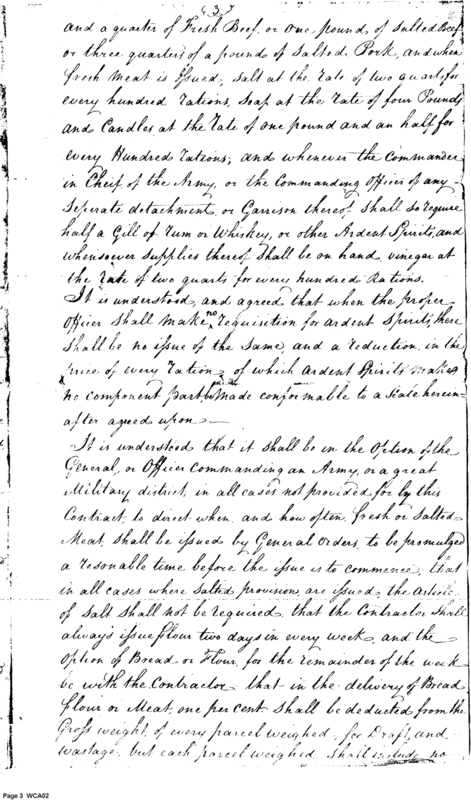 (3)
and a quarter of Fresh Beef, or one pound of Salted Beef
or three quarters of a pound of Salted Pork, and when
fresh meat is Issued, salt at the rate of two quarts for
every hundred rations, soap at the rate of four Pounds
and Candles at the rate of one pound and an half for
every Hundred rations; and whenever the Commander
in Cheif of the Army, or the Commanding Officer of any
Seperate detachment, or Garrison thereof shall so require
half a Gill of rum or Whiskey, or other Ardent Spirits, and
whensoever supplies thereof shall be on hand, vinegar at
the rate of two quarts for every hundred Rations.
It is understood, and agreed that when the proper
Officer shall make no requisition for ardent Spirits, there
shall be no issue of the same, and a reduction, in the
price of every ration, of which ardent Spirits makes
no component part be made conformable to a scale herein-
after agreed upon —
It is understood that it shall be in the Option of the
General, or Officer commanding an Army, or a great
Military district, in all cases not provided for by this
Contract, to direct when, and how often, fresh or salted
Meat, shall be issued by General orders, to be promulged
a resonable time before the issue is to commence, that
in all cases where salted provision, are issued, the Article
of Salt shall not be required, that the Contractor shall
always issue flour two days in every week, and the
option of Bread or Flour, for the remainder of the week
be with the Contractor, that in the delivery of Bread
flour or Meat, one per cent shall be deducted from the
Gross weight, of every parcel weighed, for Draft, and
wastage, but each parcel weighed shall include no
Page 3 WCA02